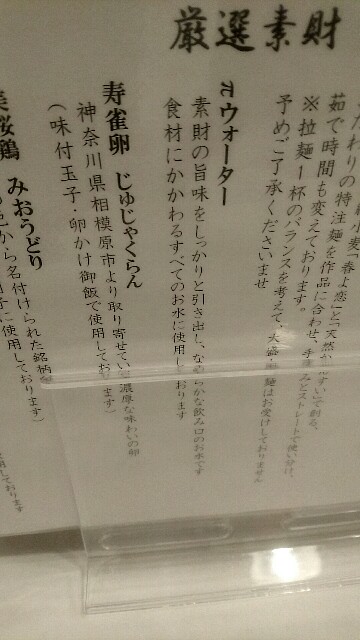 厳選素財
わりの特注麺を作品に合わせ、手
茹で時間も変えております。
※拉麺1杯のバランスを考えて、大盛 麺はお受けしておりません
予めご了承くださいませ
πウォーター
素財の旨味をしっかりと引き出し、な らかな飲み口のお水です
食材にかかわるすべてのお水に使用し おります
寿雀卵 じゅじゃくらん
神奈川県相模原市より取り寄せてい 濃厚な味わいの卵
（味付玉子・卵かけ御飯で使用してお ます）
桜鶏 みおうどり
色から名付けられた銘柄
に使用しております）